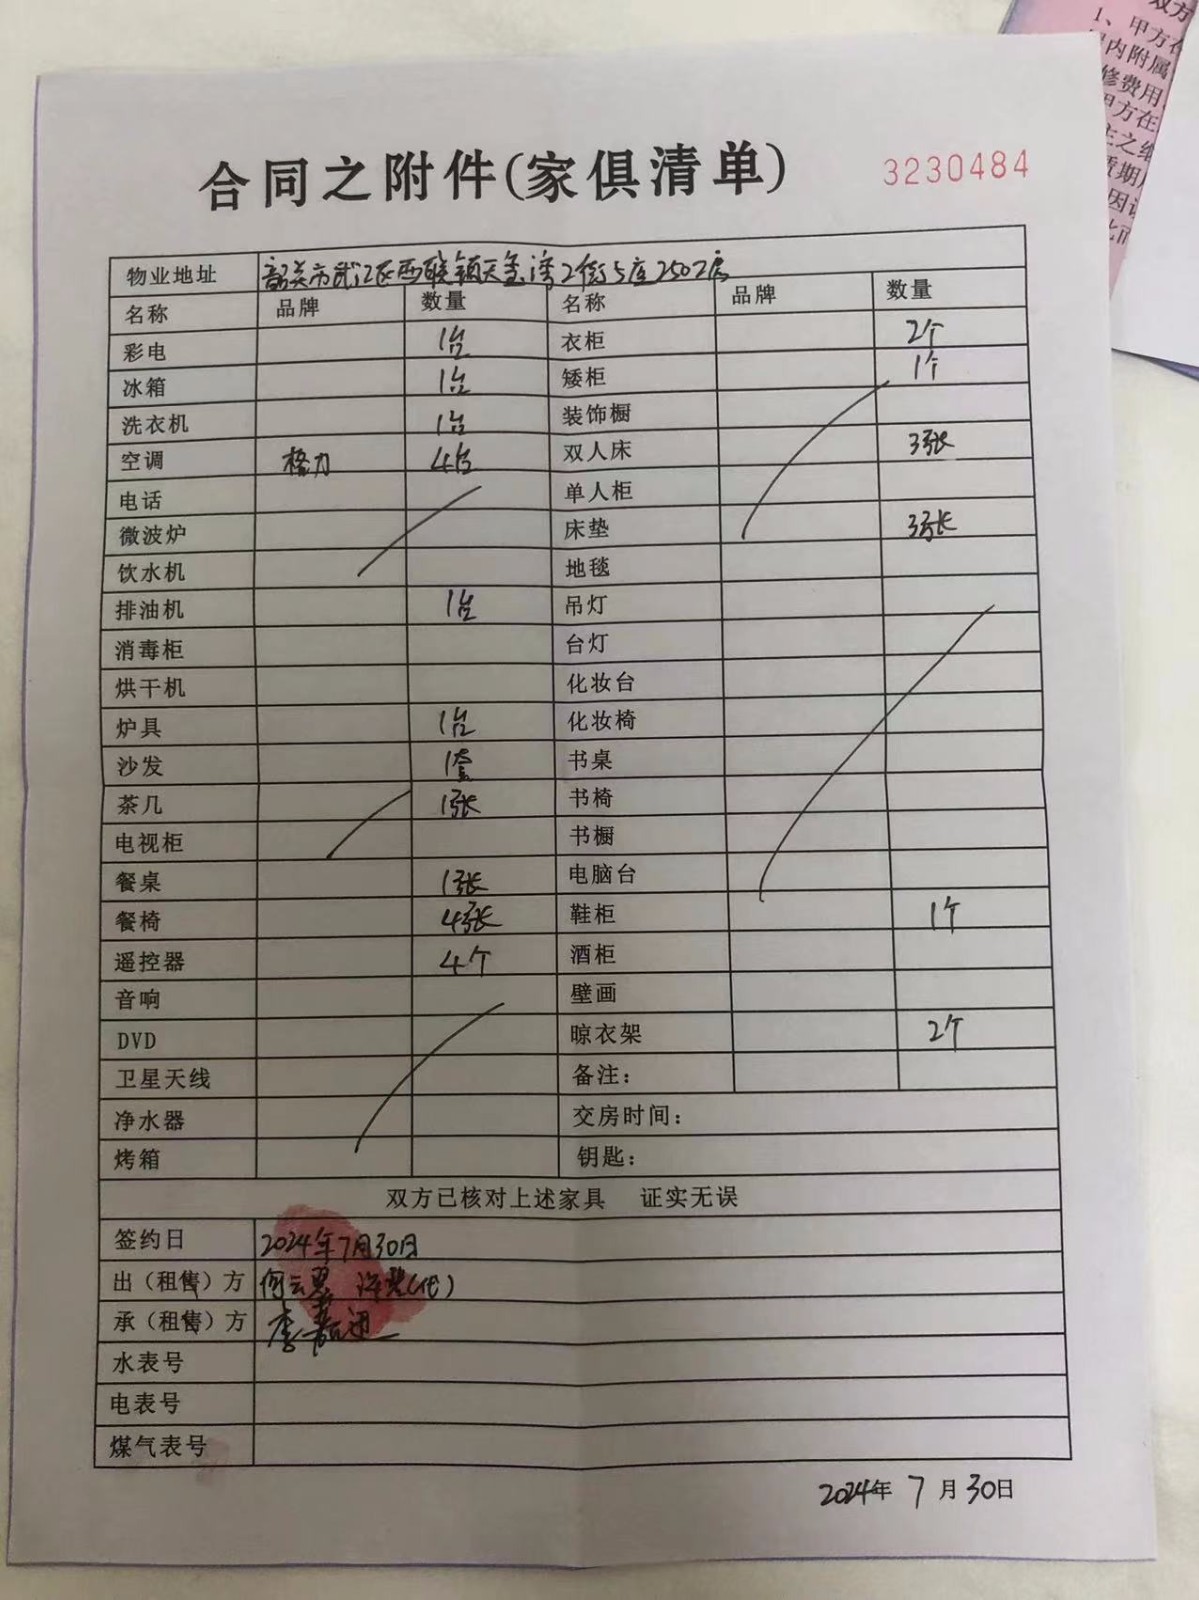 合同之附件(家俱清单) 3230484
物业地址 韶关市武江区西联镇天玺湾2街5座2502房
名称 品牌 数量 名称 品牌 数量
彩电 1台 衣柜 2个
冰箱 1台 矮柜 1个
洗衣机 1台 装饰橱
空调 格力 4台 双人床 3张
电话 单人柜
微波炉 床垫 3张
饮水机 地毯
排油机 1台 吊灯
消毒柜 台灯
烘干机 化妆台
炉具 1台 化妆椅
沙发 1套 书桌
茶几 1张 书椅
电视柜 书橱
餐桌 1张 电脑台
餐椅 4张 鞋柜 1个
遥控器 4个 酒柜
音响 壁画
DVD 晾衣架 2个
卫星天线 备注：
净水器 交房时间：
烤箱 钥匙：
双方已核对上述家具 证实无误
签约日 2024年7月30日
出（租售）方 何云 (代)
承（租售）方 李嘉
水表号
电表号
煤气表号
2024年7月30日
双方
1、甲方在
内附属
修费用
甲方在
主之
期
因